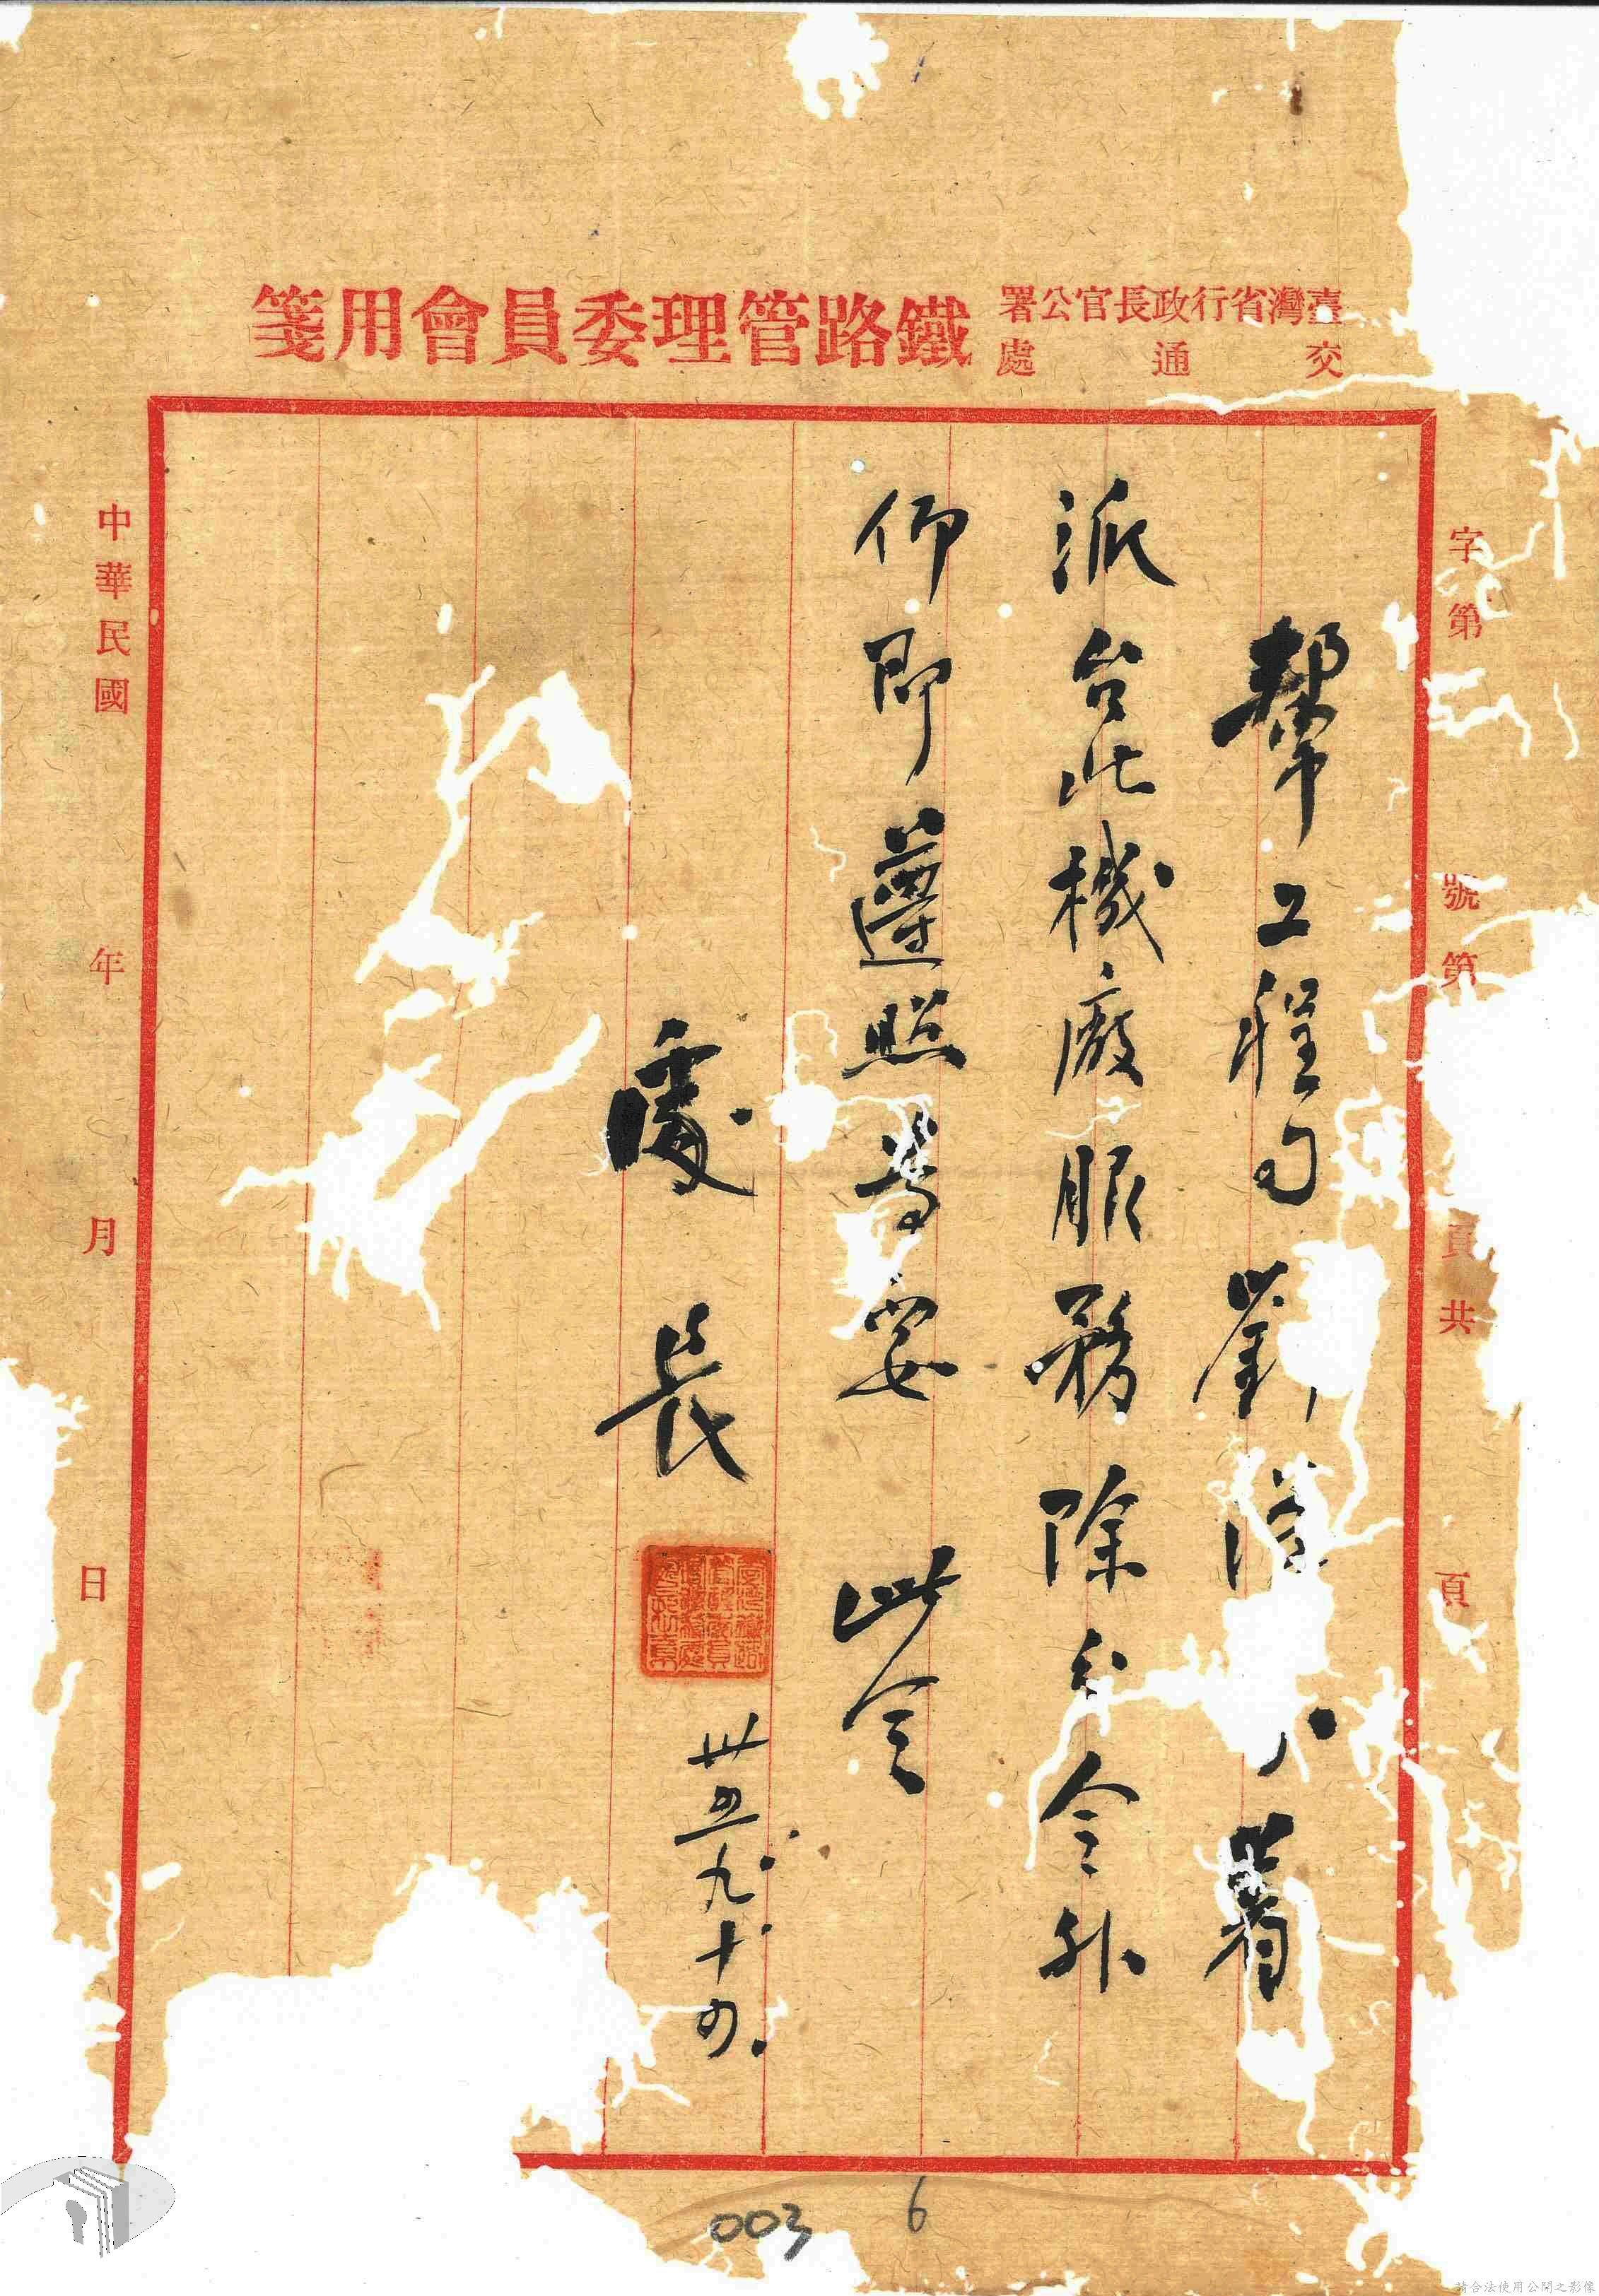 臺灣省行政長官公署
交通處
鐵路管理委員會用箋
字第 號第 頁共 頁
幫工程司劉 著
派台北機廠服務除分令外
仰即遵照為要 此令
處長
卅五.九.十四.
中華民國 年 月 日
003
6
請合法使用公開之影像